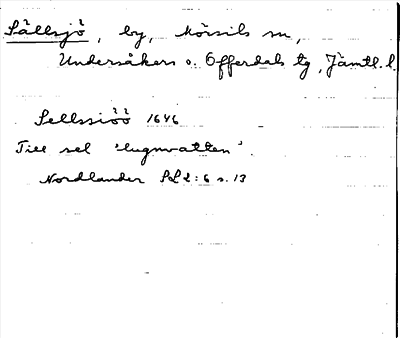 Sällsjö, by, Mörsils sn,
Undersåkers o. Offerdals tg, Jämtl. l.
Sellssiöö 1646
Till sel 'lugnvatten'.
Nordlander SoL 2:6 s. 13